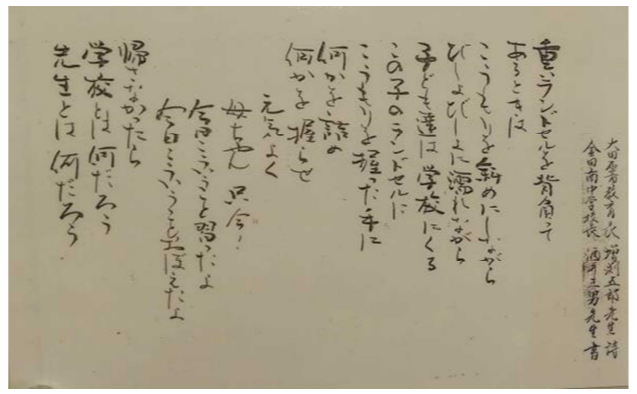 大田原 教育長 増渕五郎先生詩
金田南中学校長 酒井三男先生書
重いランドセルを背負って
あるときは
こうもりを斜めにしながら
びしょびしょに濡れながら
子ども達は学校にくる
この子のランドセルに
こうもりを握った手に
何かを詰め
何かを握らせ
元気よく
母ちゃん 只今！
今日こういうこと習ったよ
今日こういうことおぼえたよ
帰さなかったら
学校とは何だろう
先生とは何だろう